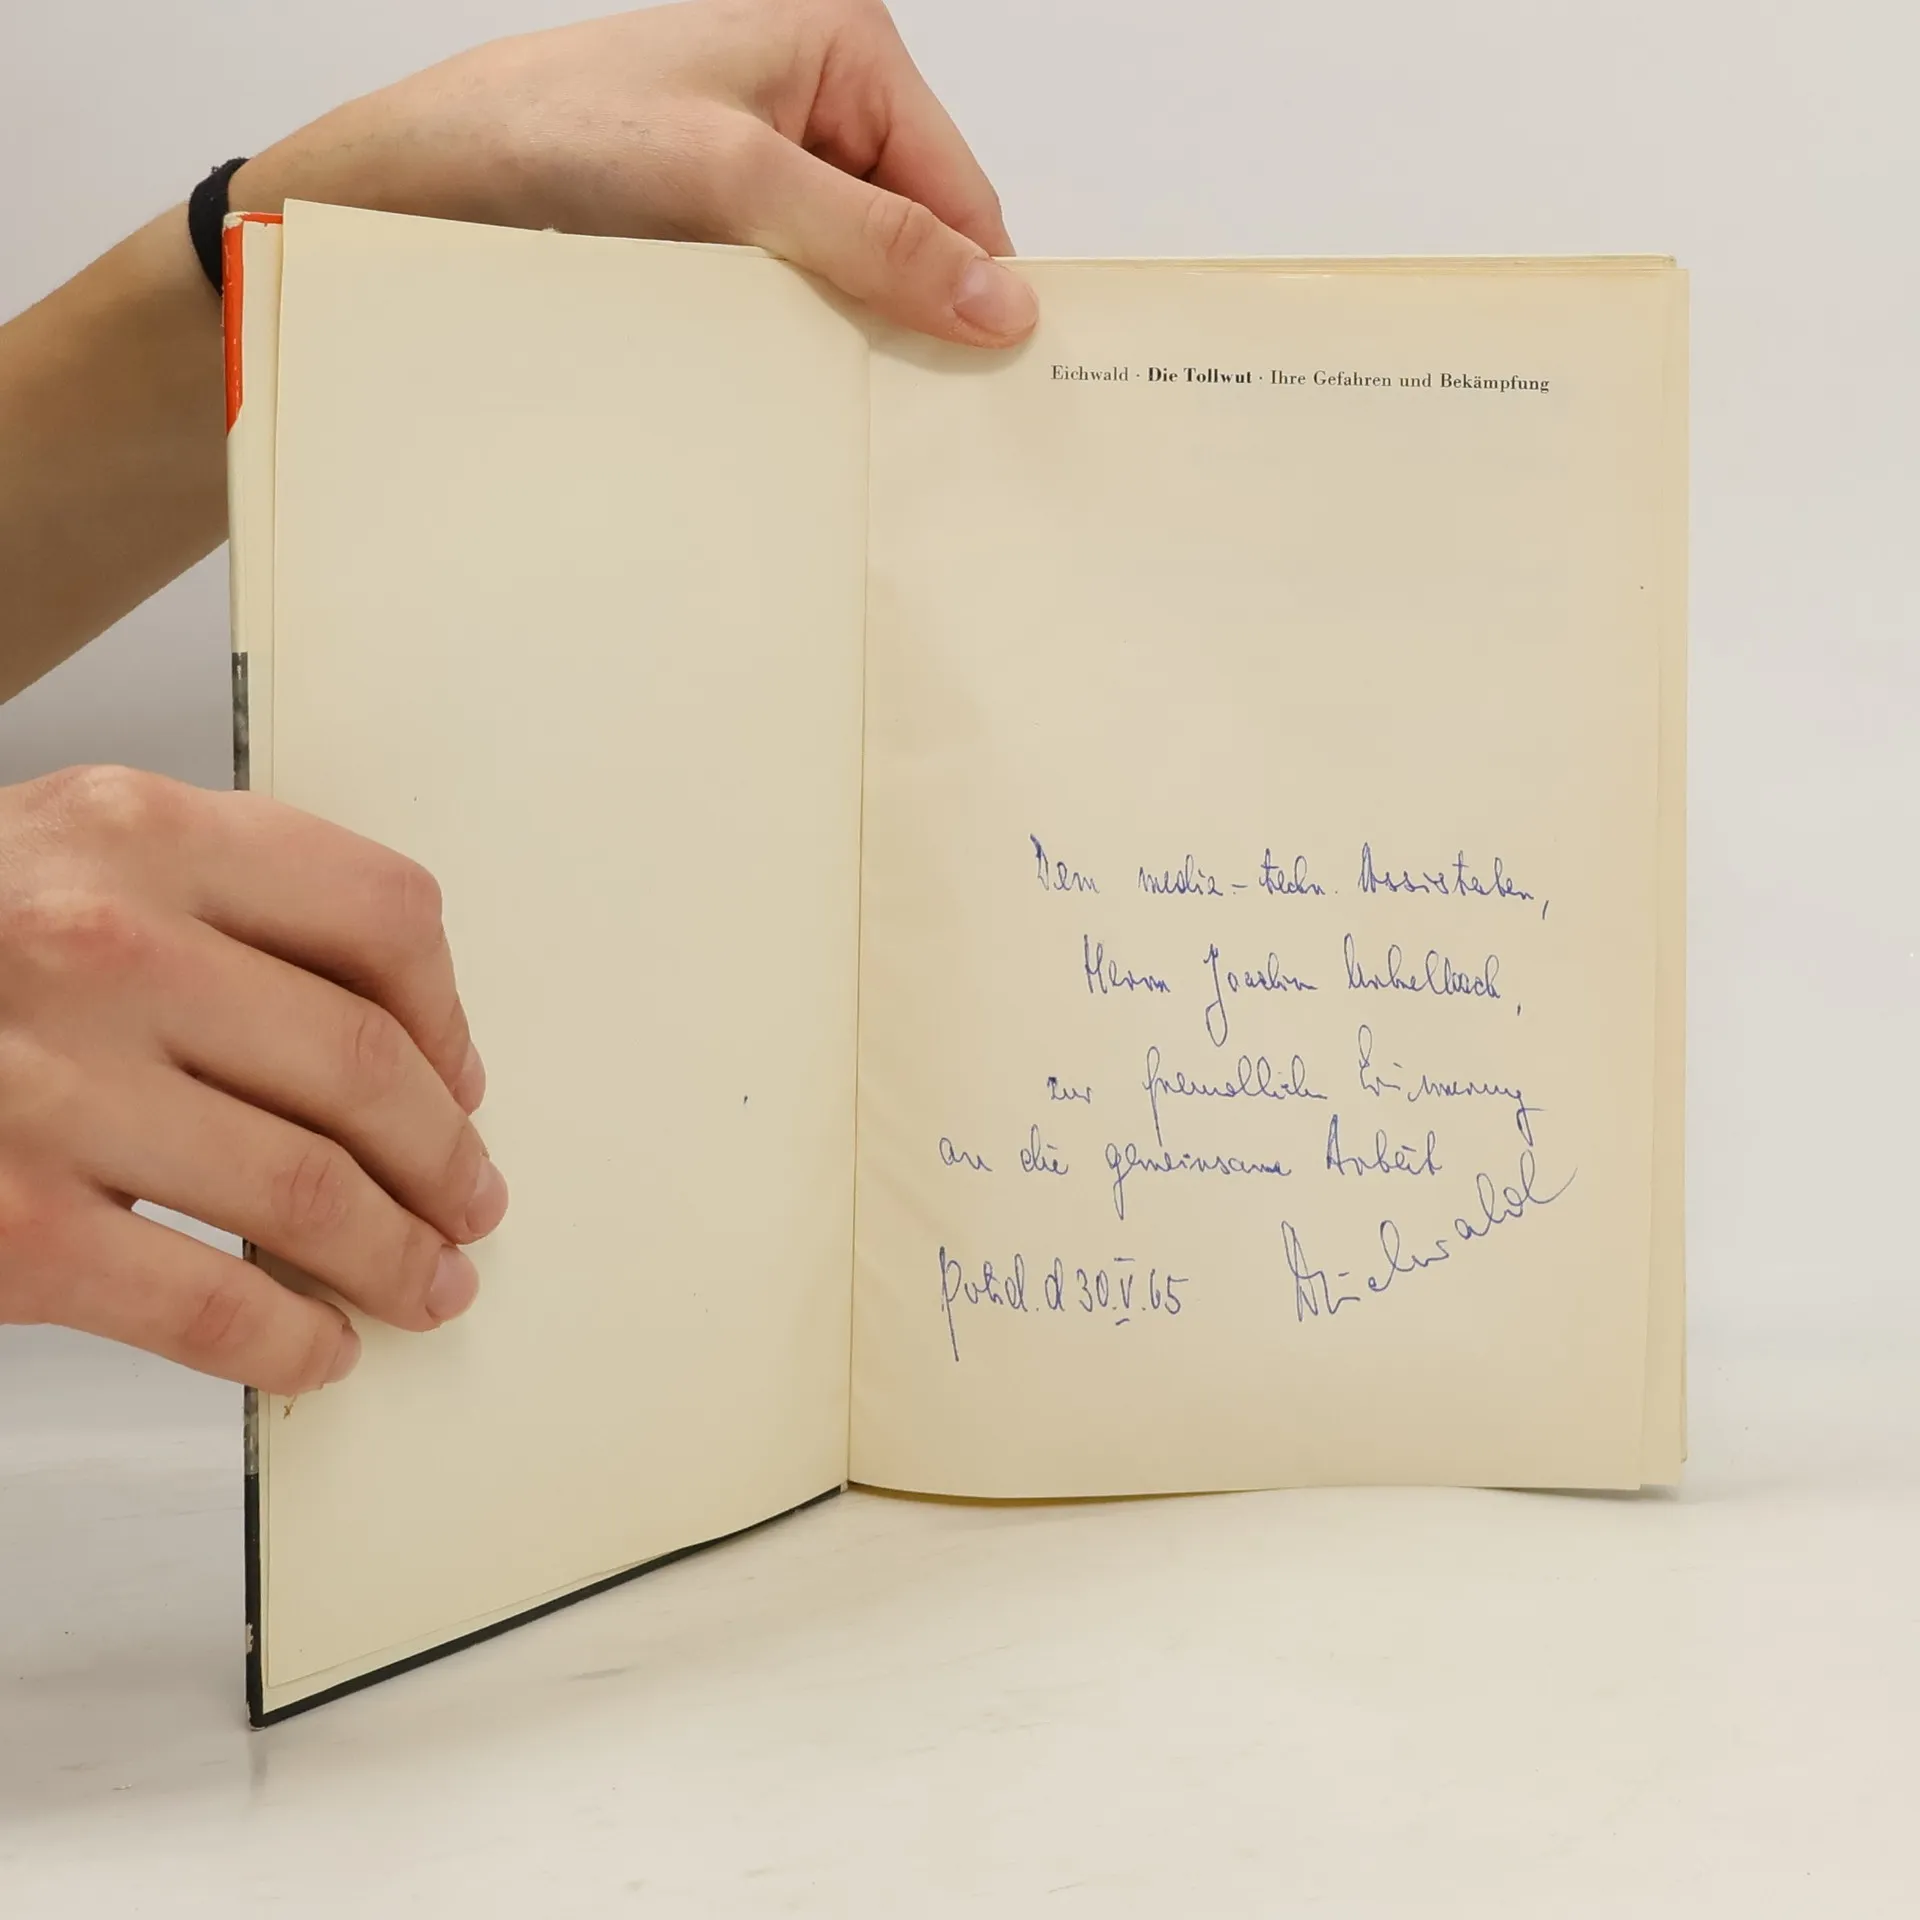 Eichwald · Die Tollwut · Ihre Gefahren und Bekämpfung
Dem mediz.-techn. Assistenten,
Herrn Joachim
zur freundlichen Erinnerung
an die gemeinsame Arbeit
d 30.V.65 Eichwald